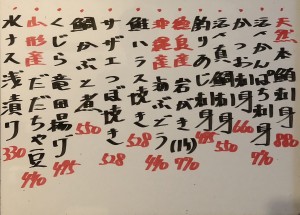 天然本鮪刺身 880
活〆かんぱち刺身 770
かつお刺身 660
活〆真鯛刺身 550
釣りあじ刺身 495
徳島産 岩がき(1ヶ) 770
北海産 あぶどう 440
鮭ハラス焼き 528
サザエつぼ焼き 528
鯛かぶと煮 550
くじら竜田揚げ 495
山形産 だだちゃ豆 440
水ナス浅漬け 330